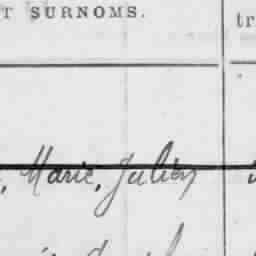 T SURNOMS.
tr
, Marie, Julien